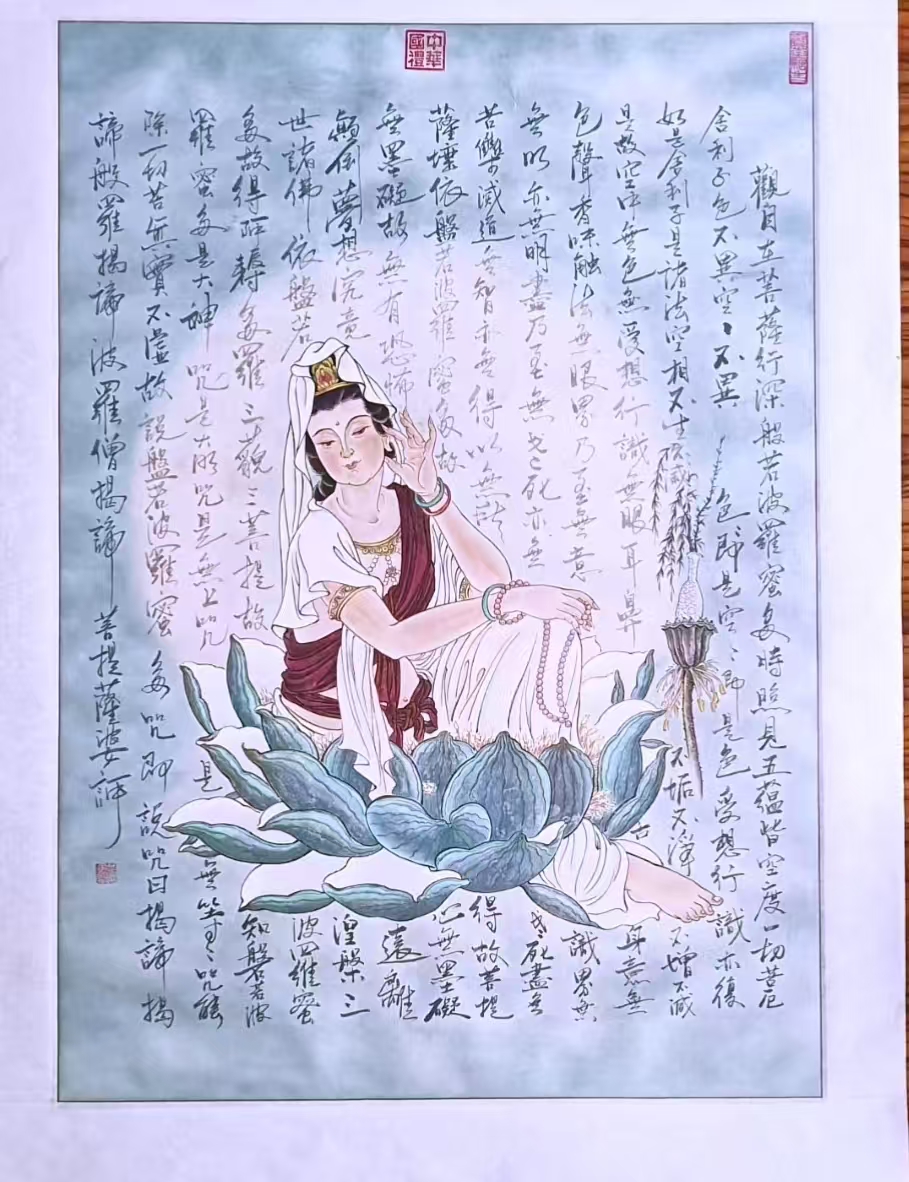 中華國禮
觀自在菩薩行深般若波羅蜜多時照見五蘊皆空度一切苦厄
舍利子色不異空〻不異色即是空〻即是色受想行識亦復
如是舍利子是諸法空相不生不滅不垢不淨不增不減
是故空中無色無受想行識無眼耳鼻舌身意無
色聲香味触法無眼界乃至無意識界無
無明亦無明盡乃至無老〻死亦無老〻死盡無
苦集滅道無智亦無得以無所得故菩提
薩埵依盤若波羅蜜多故心無罣礙
無罣礙故無有恐怖遠離
顛倒夢想究竟湼槃三
世諸佛依盤若波羅蜜
多故得阿耨多羅三藐三菩提故知盤若波
羅蜜多是大神咒是大明咒是無上咒是無等〻咒能
除一切苦真實不虛故說盤若波羅蜜多咒即說咒曰揭諦揭
諦般羅揭諦波羅僧揭諦菩提薩婆訶